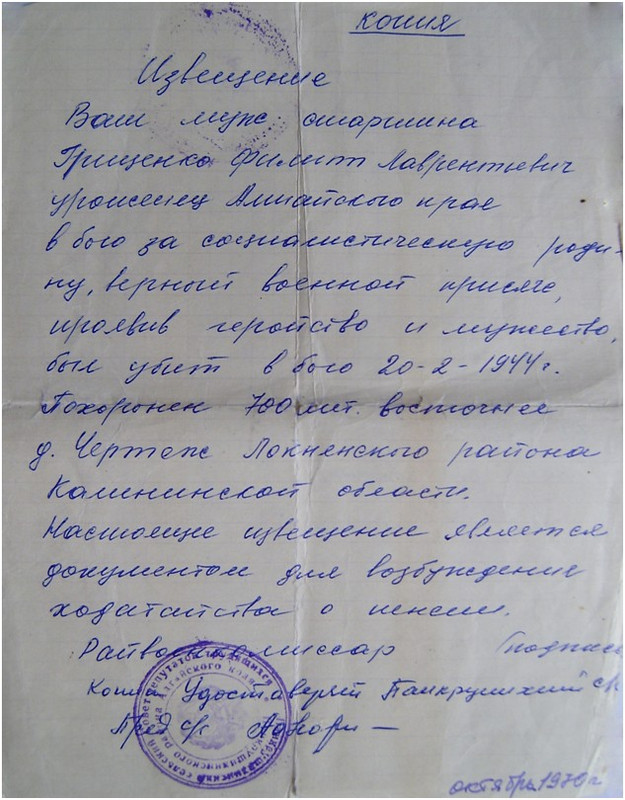 Копия
Извещение
Ваш муж старшина
Грищенко Филипп Лаврентьевич
уроженец Алтайского края
в бою за социалистическую роди-
ну, верный военной присяге,
проявив геройство и мужество,
был убит в бою 20-2-1944 г.
Похоронен 700 мт. восточнее
д. Чертеж Локненского района
Калининской области.
Настоящее извещение является
документом для возбуждения
ходатайства о пенсии.
Райвоенкомиссар (подпись
Удостоверяет Панкрушихинский с/с
Пред с/с
октябрь 1970 г